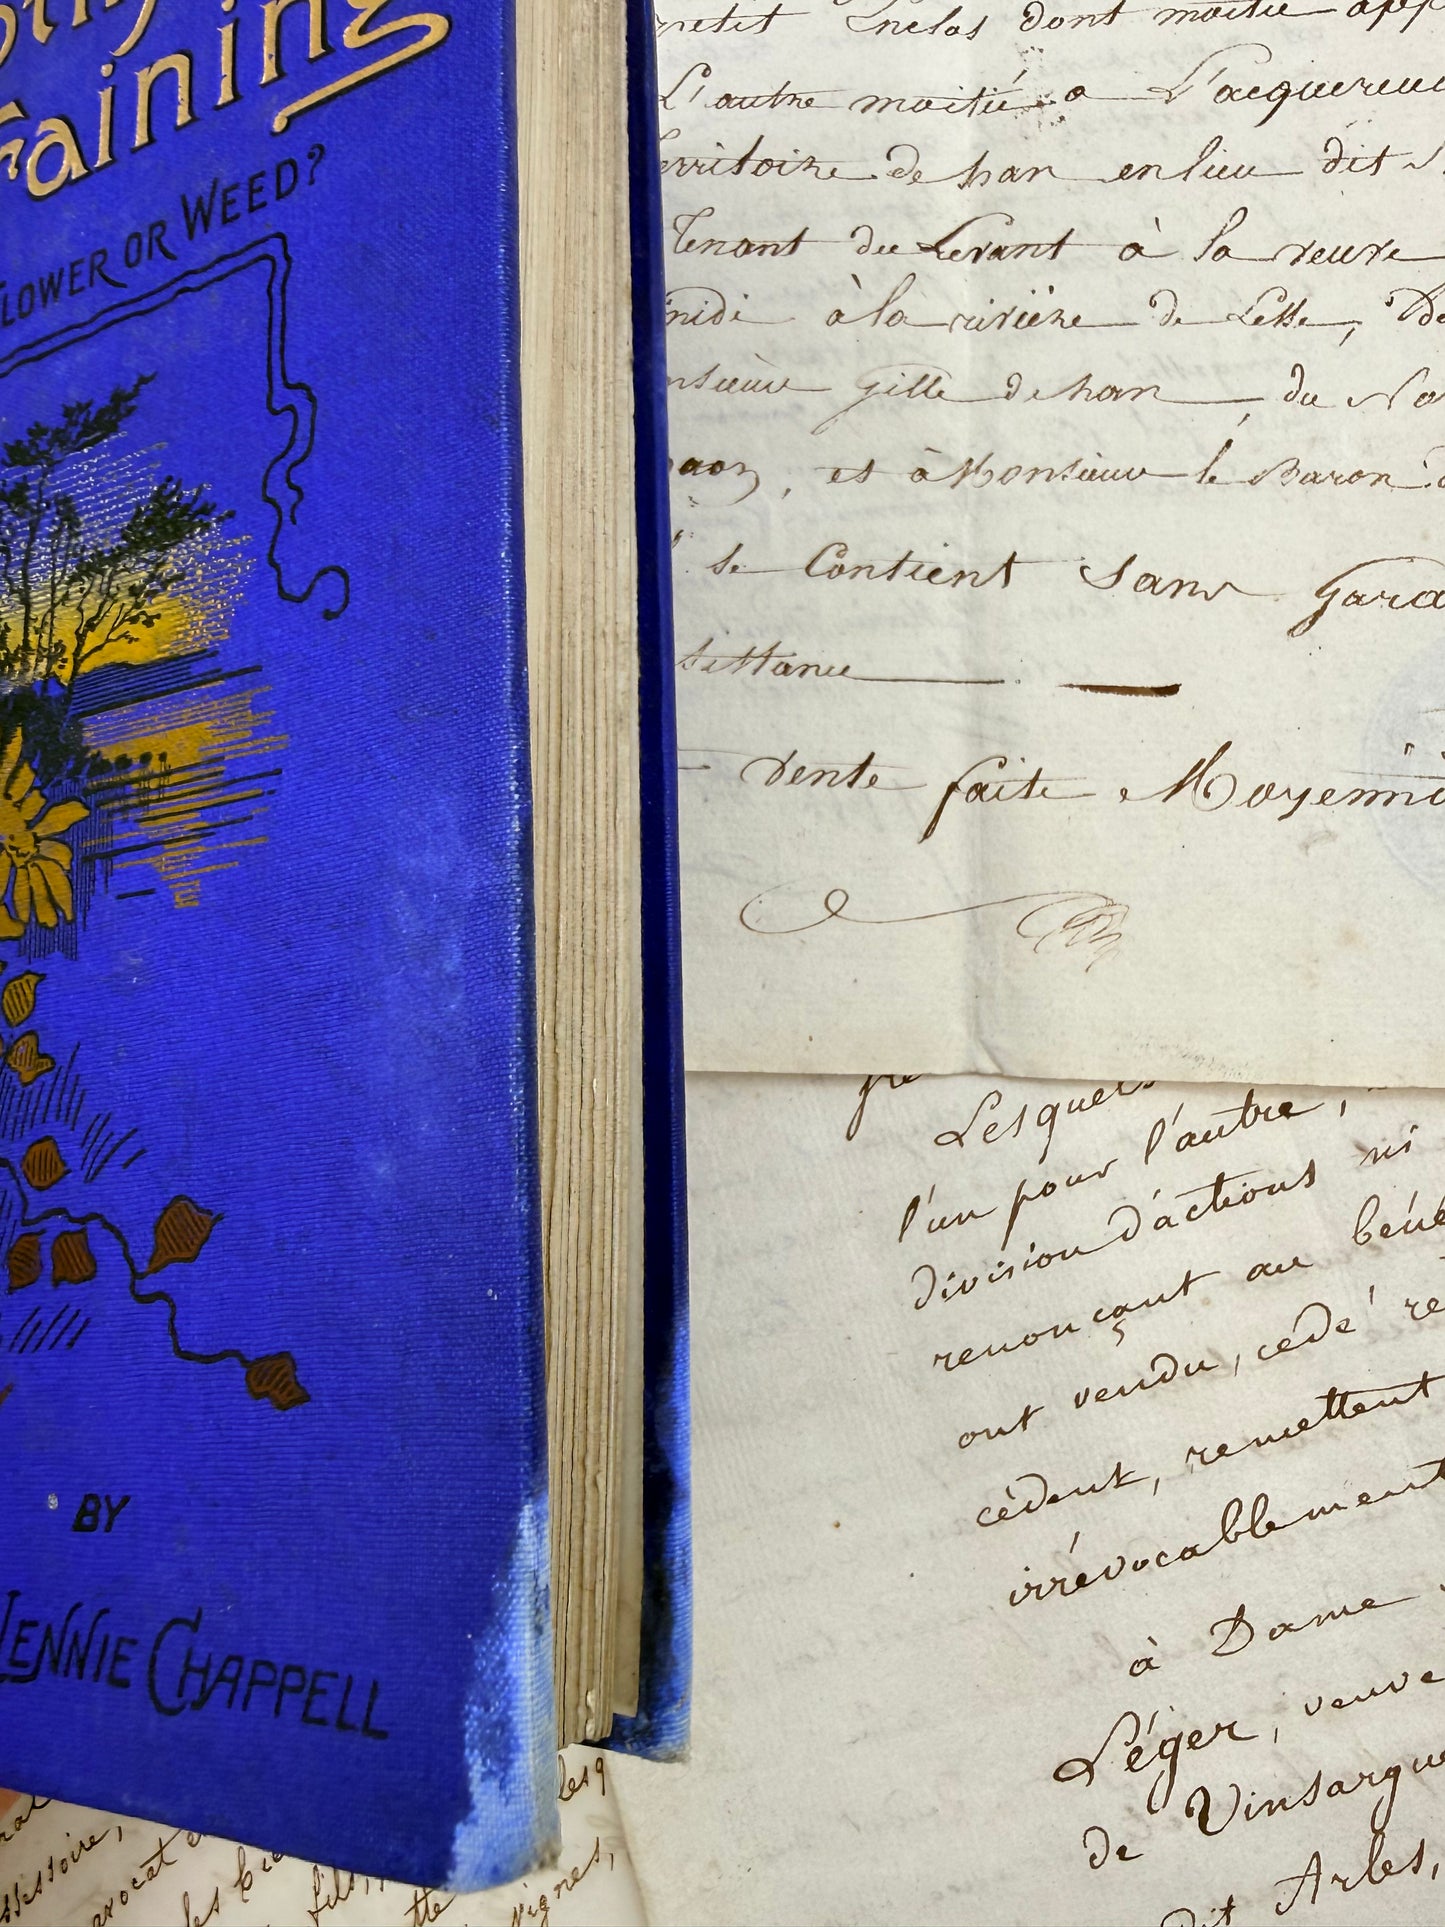 Faining
FLOWER OR WEED?
BY
JENNIE CHAPPELL
petit Enclos dont moitié
L'autre moitié a L'acquereur
territoire de han en lieu dit
Tenant du Levant à la veuve
midi à la rivière de Lesse, De
Gille de han, du No
et à Monsieur le Baron
se Contient sans Gara
vente faite Moyenn
Lesquels
l'un pour l'autre,
division d'actions ni
renonçant au béné
ont vendu, cédé re
cèdent, remettent
irrévocablement
à Dame
Léger, veuve
de Vinsargue
dit Arles,
les q
avocat
les
fils,
vignes,